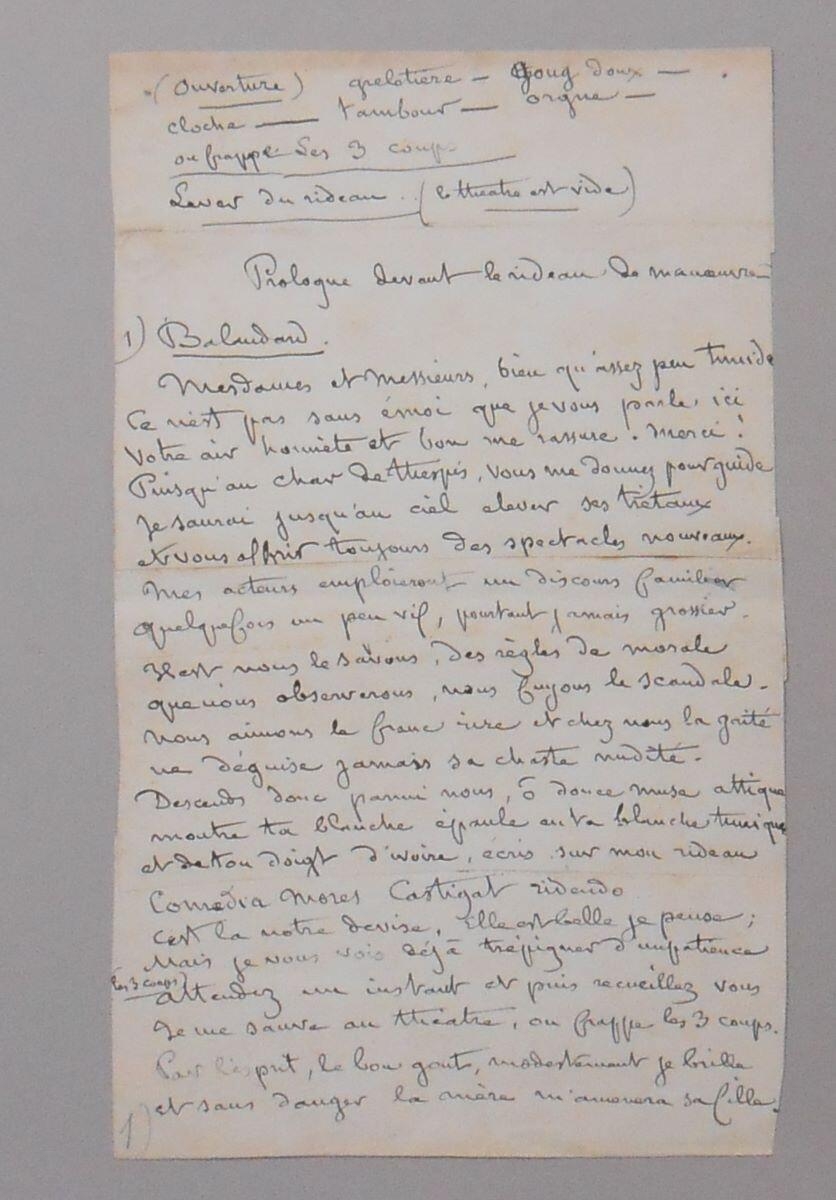 (Ouverture) grelotière — Goug doux —
cloche — tambour — orgue —
on frappe Les 3 coups
Lever du rideau . (le théatre est vide)
Prologue devant le rideau de manœuvre
1) Balandard.
Mesdames et Messieurs, bien qu'assez peu timide
Ce n'est pas sans émoi que je vous parle ici
Votre air honnête et bon me rassure. merci !
Puisqu'au char de thespis, vous me donnez pour guide
Je saurai jusqu'au ciel elever ses trétaux
et vous offrir toujours des spectacles nouveaux.
Mes acteurs emploieront un discours familier
Quelquefois un peu vif, pourtant jamais grossier.
Il est nous le savons, des règles de morale
que nous observerons, nous fuyons le scandale.
Nous aimons le franc rire et chez nous la gaité
ne déguise jamais sa chaste nudité.
Descends donc parmi nous, ô douce muse attique
montre ta blanche épaule en ta blanche tunique
et de ton doigt d'ivoire, écris sur mon rideau
Comedia Mores Castigat ridendo
c'est la notre devise, Elle est belle je pense ;
Mais je vous vois déjà trépigner d'impatience
(les 3 coups)
attendez un instant et puis recueillez vous
Je me sauve au théatre, on frappe les 3 coups.
Par l'esprit, le bon gout, modestement je brille
et sans danger la mère m'amenera sa fille.
1)